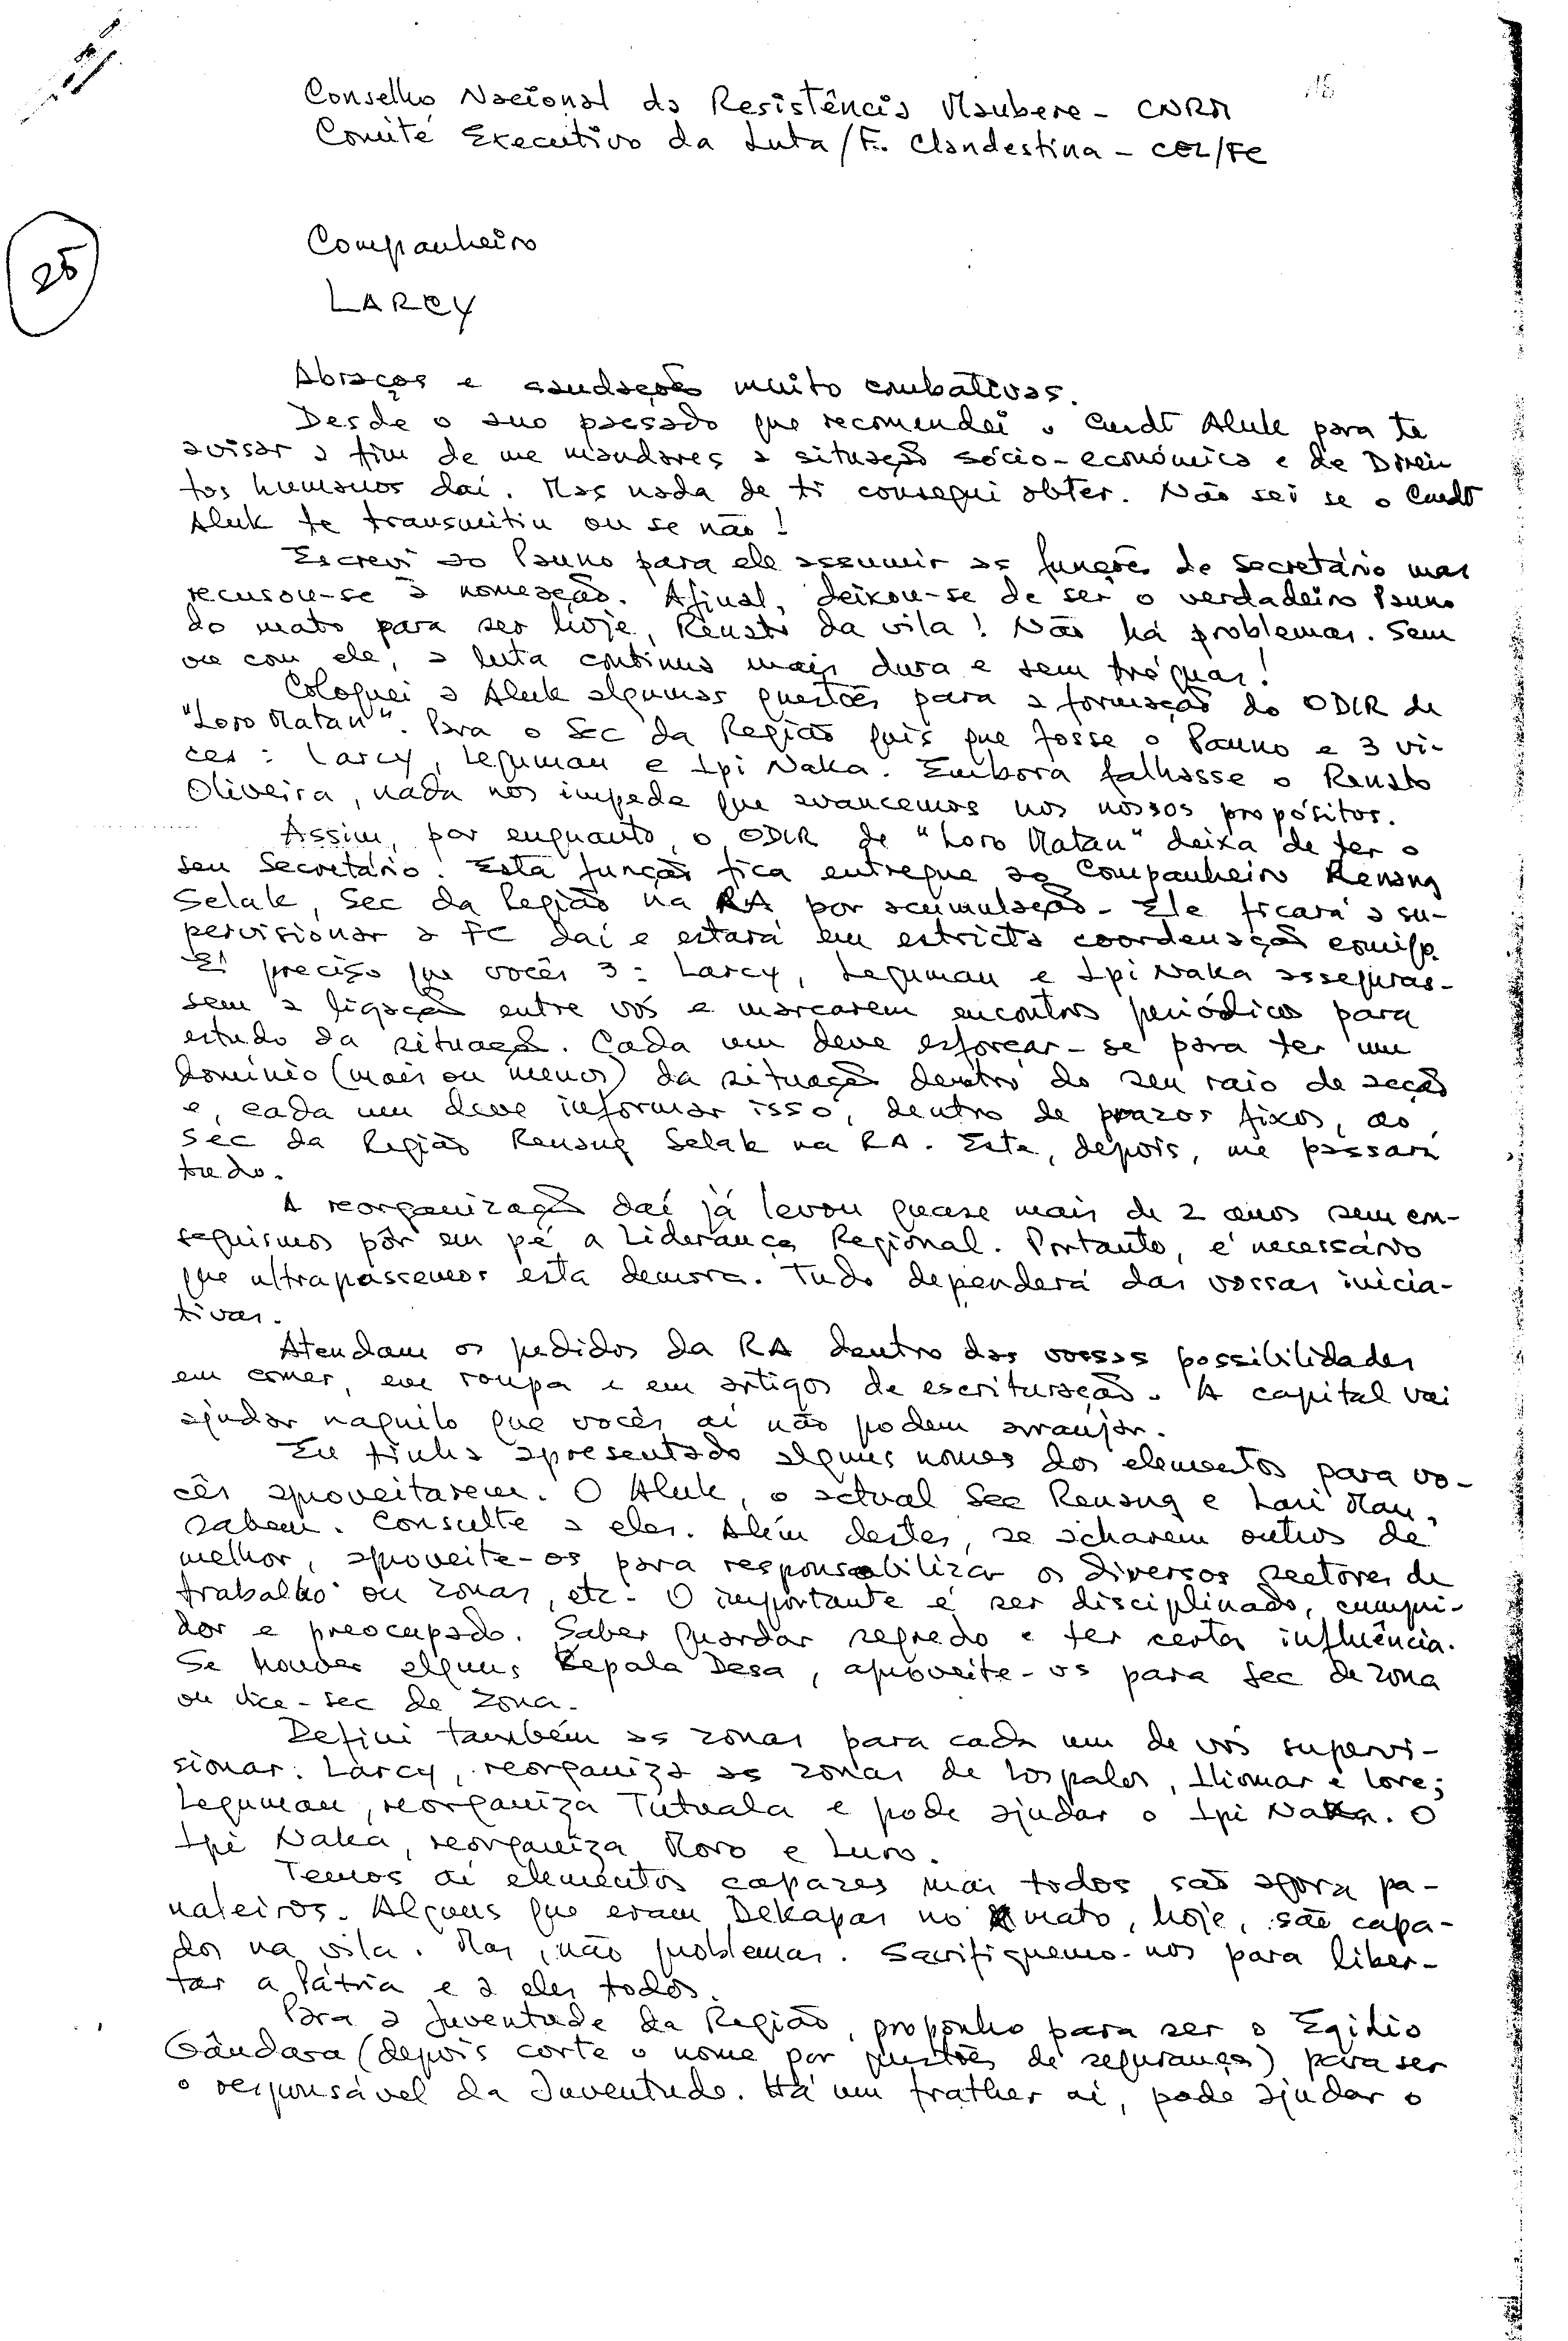 Conselho Nacional da Resistência Maubere - CNRM
Comité Executivo da Luta/F. Clandestina - CEL/FC
25
Companheiro
LARCY
Abraços e saudações muito combativas.
Desde o ano passado que recomendei o Cmdt Aluk para te
avisar a fim de me mandares a situação sócio-económica e de Direi
tos humanos daí. Mas nada de ti consegui obter. Não sei se o Cmdt
Aluk te transmitiu ou se não!
Escrevi ao Pauno para ele assumir as funções de secretário mas
recusou-se à nomeação. Afinal, deixou-se de ser o verdadeiro Pauno
do mato para ser hoje, Renato da vila! Não há problemas. Sem
ou com ele, a luta continua mais dura e sem tréguas!
Coloquei a Aluk algumas questões para a formação do ODIR de
"Loro Matan". Para o Sec da Região quis que fosse o Pauno e 3 vi-
ces: Larcy, Leguman e Ipi Naka. Embora falhasse o Renato
Oliveira, nada nos impede que avancemos nos nossos propósitos.
Assim, por enquanto, o ODIR de "Loro Matan" deixa de ter o
seu Secretário. Esta função fica entregue ao Companheiro Renang
Selak, Sec da Região na RA, por acumulação. Ele ficará a su-
pervisionar a FC daí e estará em estricta coordenação comigo.
É preciso que vocês 3: Larcy, Leguman e Ipi Naka asseguras-
sem a ligação entre vós e marcarem encontros periódicos para
estudo da situação. Cada um deve esforçar-se para ter um
domínio (mais ou menos) da situação dentro do seu raio de acção
e, cada um deve informar isso, dentro de prazos fixos, ao
Sec da Região Renang Selak na RA. Este, depois, me passará
tudo.
A reorganização daí já levou quase mais de 2 anos sem con-
seguirmos pôr em pé a Liderança Regional. Portanto, é necessário
que ultrapassemos esta demora. Tudo dependerá das vossas inicia-
tivas.
Atendam os pedidos da RA dentro das vossas possibilidades
em comer, em roupa e em artigos de escrituração. A capital vai
ajudar naquilo que vocês aí não podem arranjar.
Eu tinha apresentado alguns nomes dos elementos para vo-
cês aproveitarem. O Aluk, o actual Sec Renang e Lari Mau,
sabem. Consulte a eles. Além destes, se acharem outros de
melhor, aproveite-os para responsabilizar os diversos sectores de
trabalho ou zonas, etc. O importante é ser disciplinado, cumpri-
dor e preocupado. Saber guardar segredo e ter certa influência.
Se houver alguns Kepala Desa, aproveite-os para Sec de zona
ou vice-sec de zona.
Defini também as zonas para cada um de vós supervi-
sionar. Larcy, reorganiza as zonas de Lospalos, Iliomar e Lore;
Leguman, reorganiza Tutuala e pode ajudar o Ipi Naka. O
Ipi Naka, reorganiza Moro e Luro.
Temos aí elementos capazes mas todos são agora pa-
naleiros. Alguns que eram Dekapas no mato, hoje, são capa-
dos na vila. Mas, não problemas. Sacrifiquemo-nos para liber-
tar a Pátria e a eles todos.
Para a Juventude da Região, proponho para ser o Egídio
Gândara (depois corte o nome por questões de segurança) para ser
o responsável da Juventude. Há um frather aí, pode ajudar o